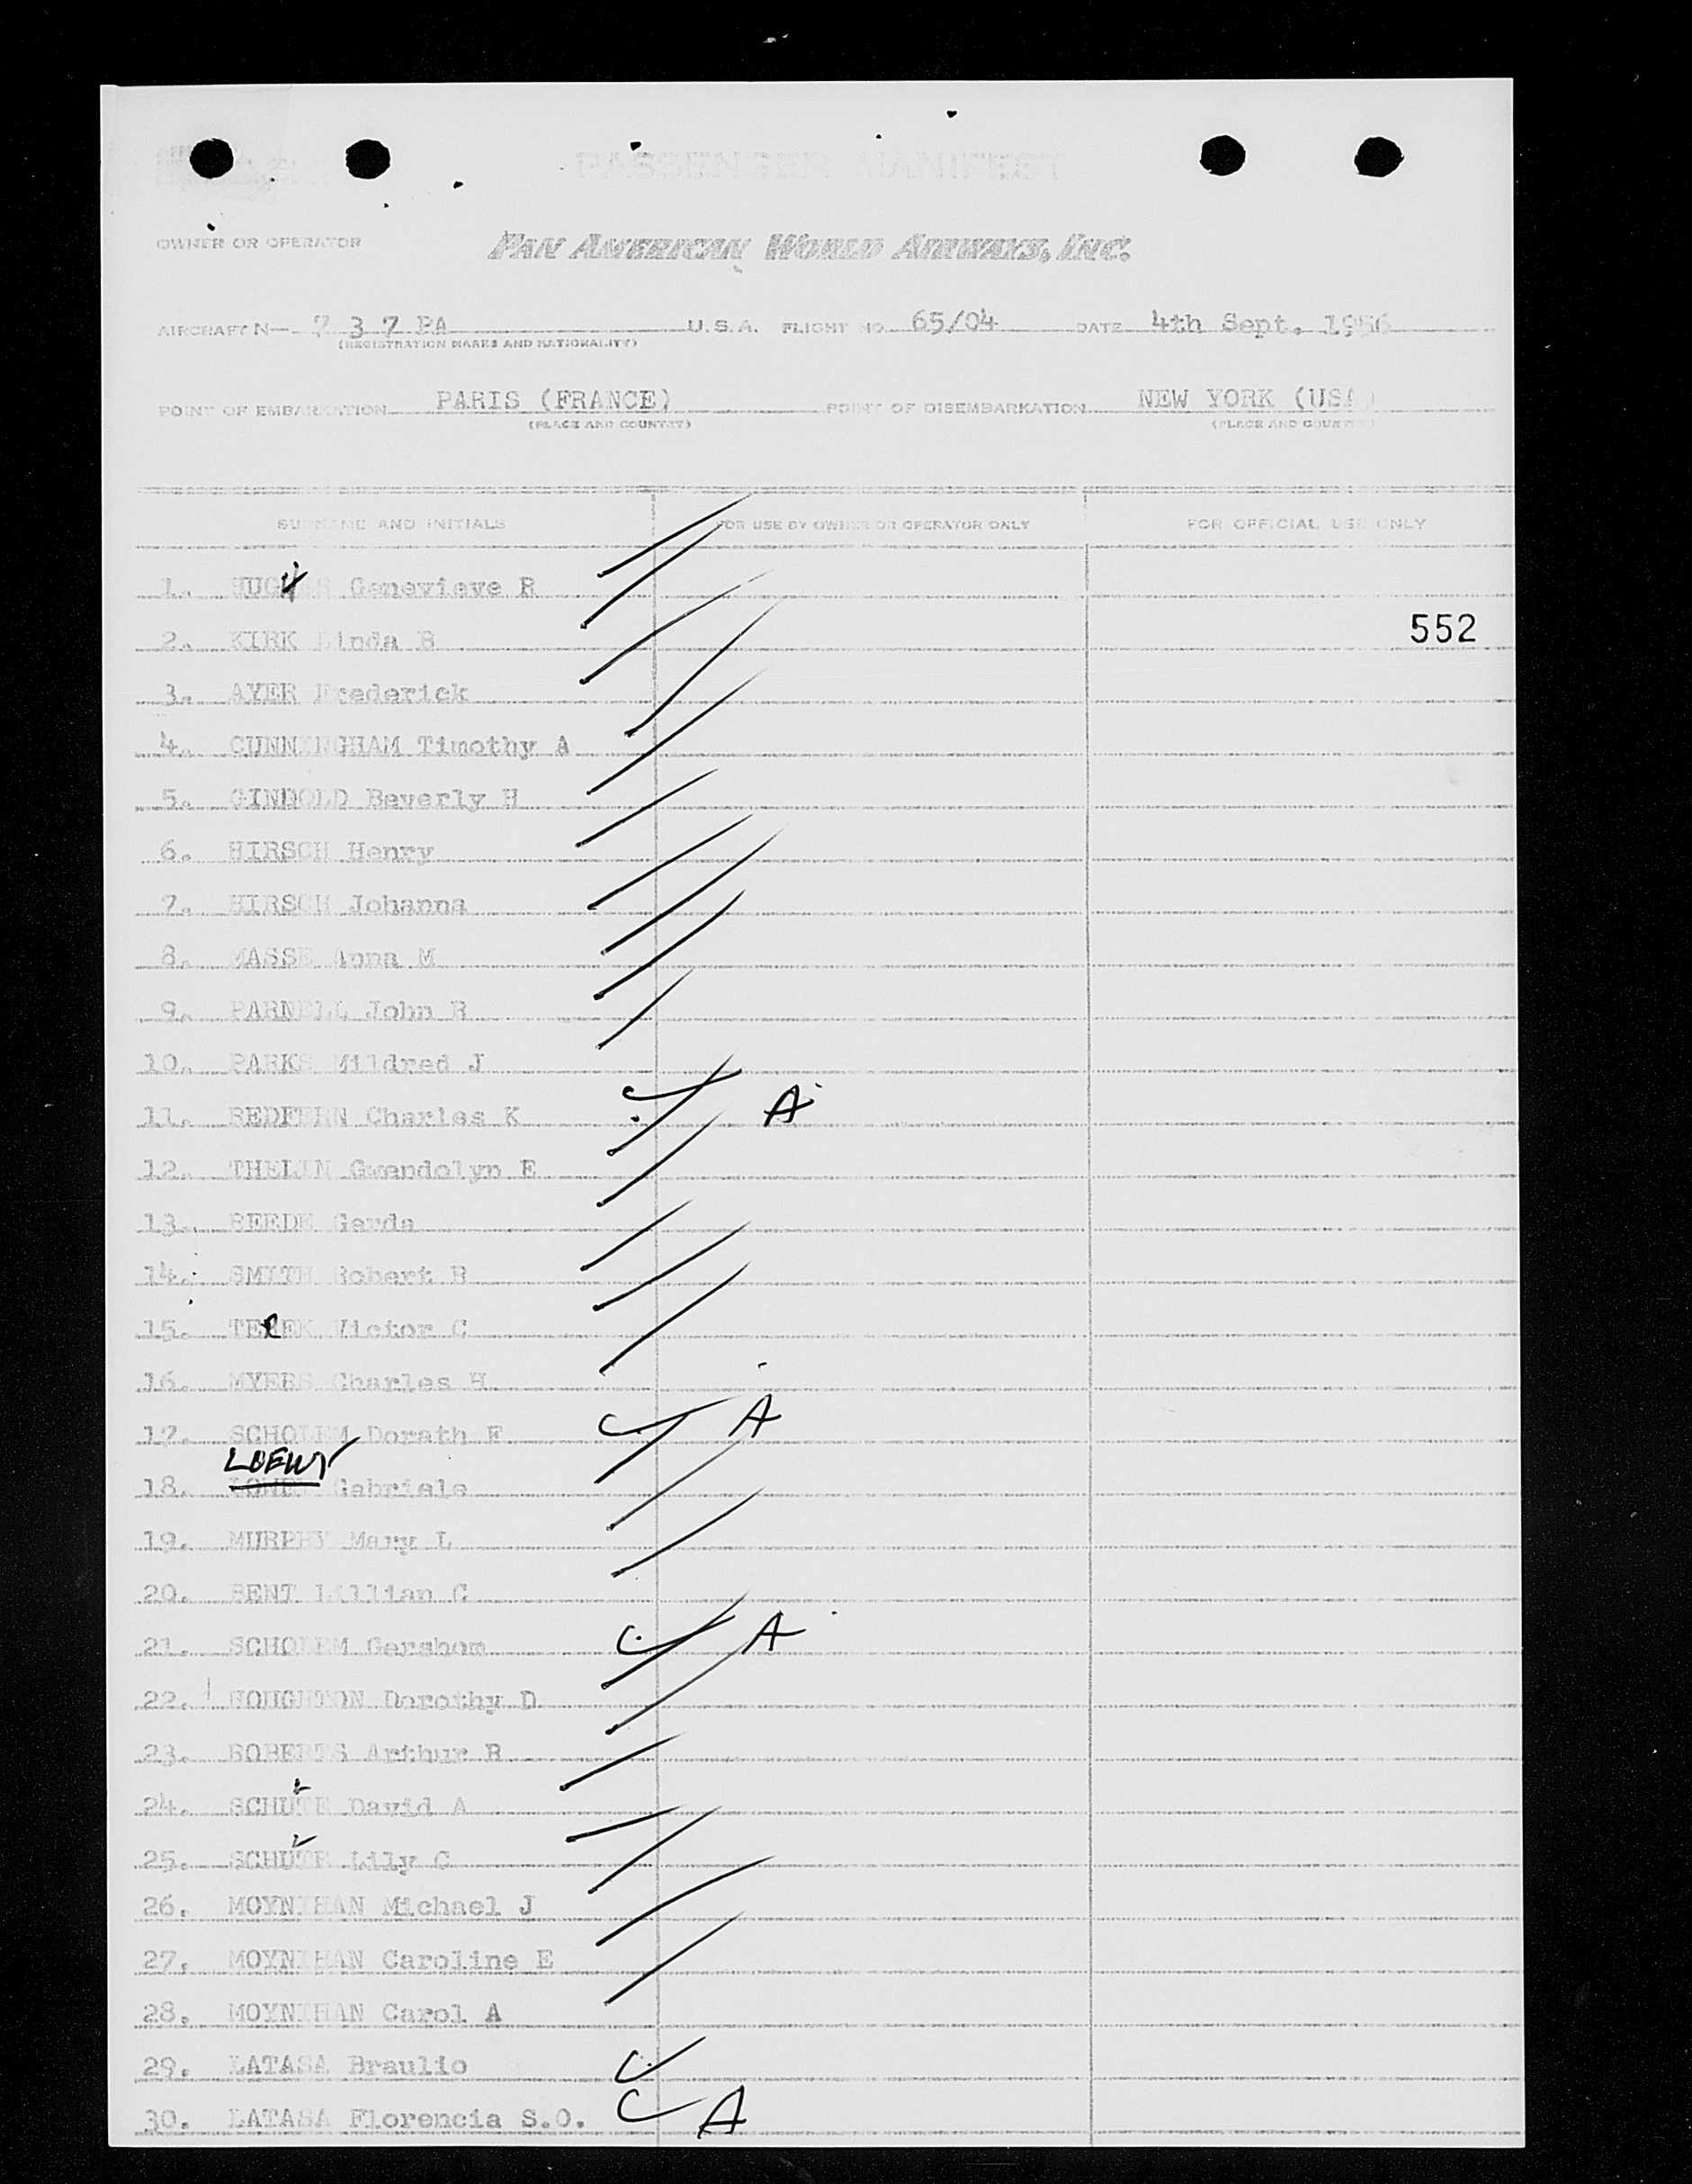 PASSENGER MANIFEST
OWNER OR OPERATOR PAN AMERICAN WORLD AIRWAYS, INC.
AIRCRAFT N— 7 3 7 PA U.S.A. FLIGHT NO. 65/04 DATE 4th Sept. 1956
(REGISTRATION MARKS AND NATIONALITY)
POINT OF EMBARKATION PARIS (FRANCE) POINT OF DISEMBARKATION NEW YORK (USA)
(PLACE AND COUNTRY) (PLACE AND COUNTRY)
SURNAME AND INITIALS FOR USE BY OWNER OR OPERATOR ONLY FOR OFFICIAL USE ONLY
1. Genevieve R
552
2. KIRK Linda B
3. AYER Frederick
4. CUNNINGHAM Timothy A
5. Beverly H
6. HIRSCH Henry
7. HIRSCH Johanna
8. MASSE Anna M
9. PARNELL John R
10. PARKS Mildred J
11. REDFERN Charles K A
12. THELIN Gwendolyn E
13. Gerda
14. SMITH Robert B
15. Victor C
16. MYERS Charles H
17. SCHOLEM Dorath F A
LOEWY
18. Gabriele
19. MURPHY Mary L
20. BENT Lillian C
21. SCHOLEM Gershom A
22. HOUGHTON Dorothy D
23. ROBERTS Arthur R
24. SCHUTE David A
25. SCHUTE Lily C
26. MOYNIHAN Michael J
27. MOYNIHAN Caroline E
28. MOYNIHAN Carol A
29. LATASA Braulio
30. LATASA Florencia S.O. A